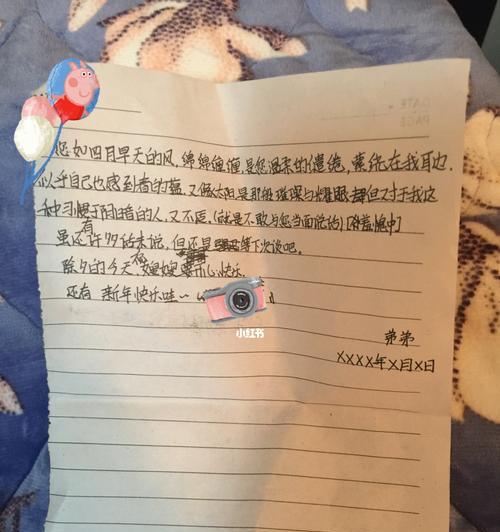 DATE
PAGE
您如四月早天的风,绵绵缠缠,是您温柔的缱绻,萦绕在我耳边.
似乎自己也感到春的蕴,又像太阳是那般璀璨与耀眼,但对于我这
种习惯于阴暗的人,又不(就是不敢与您当面说的)[补盖脸中]
虽有许多的未说,但还是等下次谈吧。
除夕的今天,祝嫂嫂要开心快乐.
还有 新年快乐哇~
小红书
弟弟
XXXX年X月X日